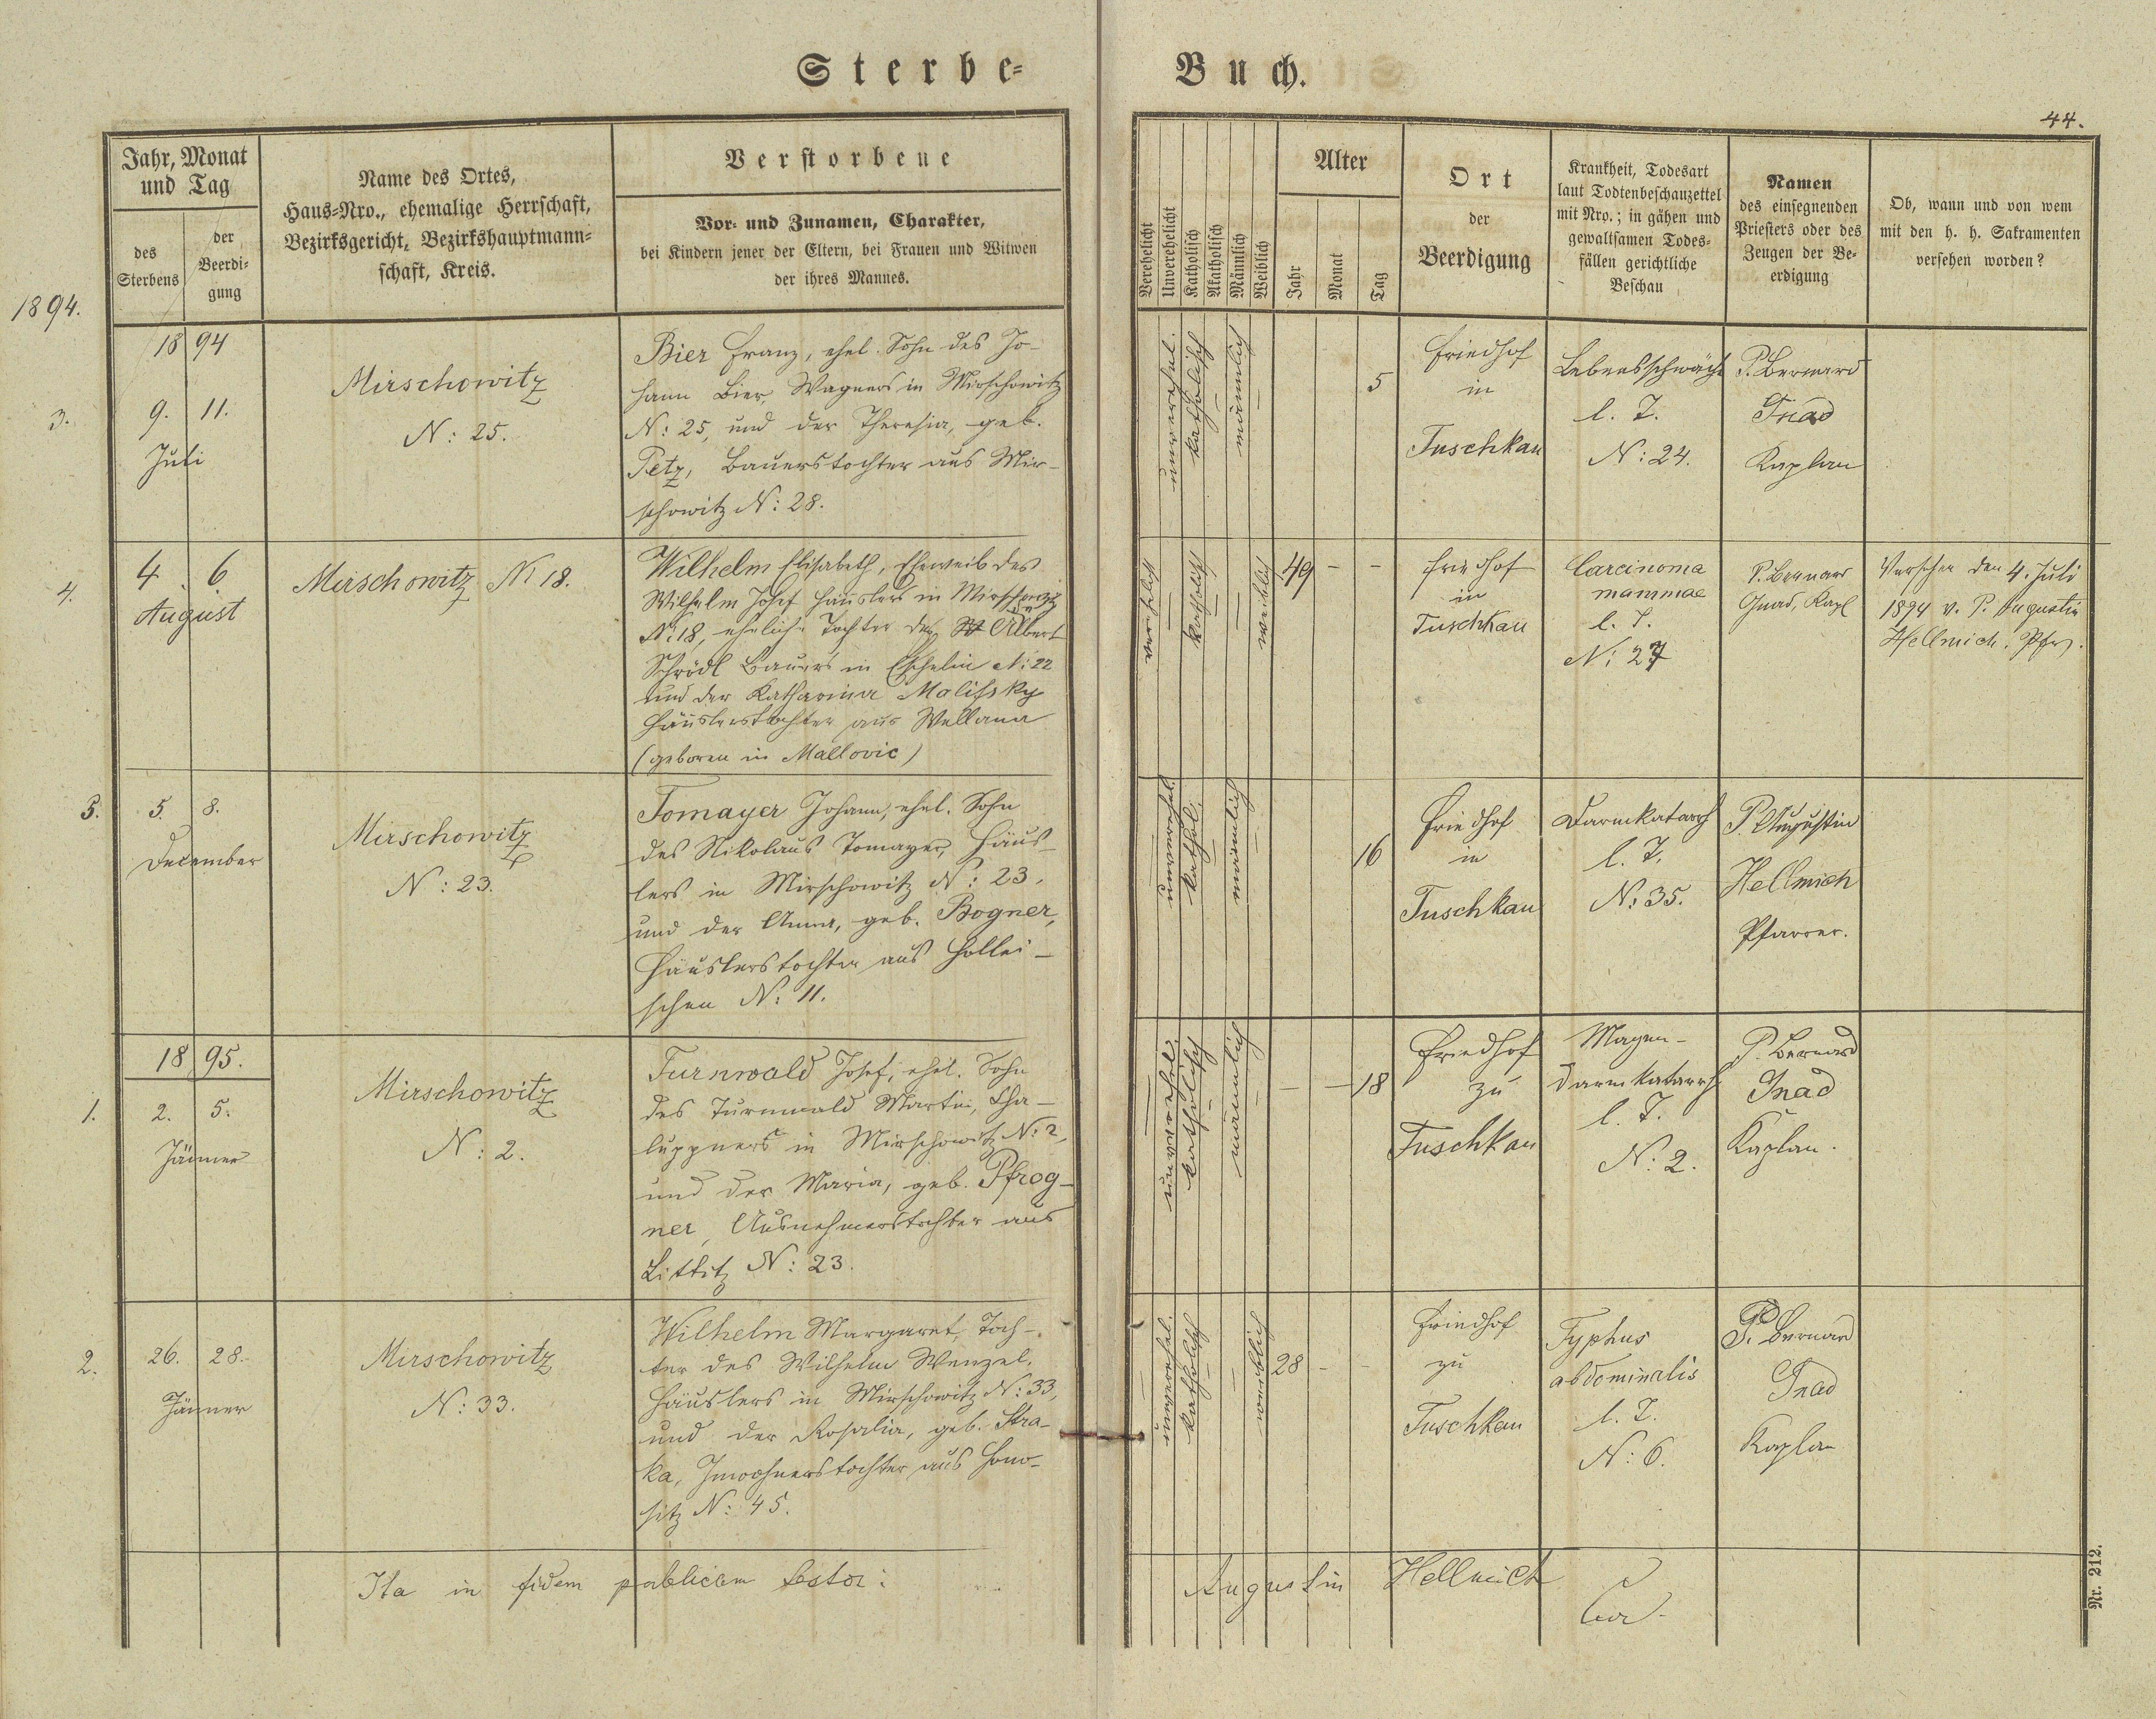 Sterbe-
Buch.
44.
Jahr, Monat
und Tag
des
Sterbens
der
Beerdi-
gung
Name des Ortes,
Haus-Nro., ehemalige Herrschaft,
Bezirksgericht, Bezirkshauptmann-
schaft, Kreis.
Verstorbene
Vor- und Zunamen, Charakter,
bei Kindern jener der Eltern, bei Frauen und Witwen
der ihres Mannes.
Verehelicht
Unverehelicht
Katholisch
Akatholisch
Männlich
Weiblich
Alter
Jahr
Monat
Tag
Ort
der
Beerdigung
Krankheit, Todesart
laut Todtenbeschauzettel
mit Nro.; in gähen und
gewaltsamen Todes-
fällen gerichtliche
Beschau
Namen
des einsegnenden
Priesters oder des
Zeugen der Be-
erdigung
Ob, wann und von wem
mit den h. h. Sakramenten
versehen worden?
1894.
1894
3.
9. 11.
Juli
Mirschowitz
N: 25.
Bier Franz, ehel. Sohn des Jo-
hann Bier, Wagners in Mirschowitz
N: 25, und der Theresia, geb.
Petz, Bauerstochter aus Mir-
schowitz N: 28.
unverehel.
katholisch
männlich
5
Friedhof
in
Tuschkau
Lebensschwäche
l. Z.
N: 24.
P. Bernard
Gnad
Kaplan
4.
4. 6
August
Mirschowitz N: 18.
Wilhelm Elisabeth, Eheweib des
Wilhelm Josef Häuslers in Mirschowitz
N: 18, eheliche Tochter des Albert
Schrödl Bauers in Eschelin N: 22
und der Katharina Malifsky
Häuslerstochter aus Wellana
(geboren in Mallovic)
verehelicht
katholisch
weiblich
49 - -
Friedhof
in
Tuschkau
Carcinoma
mammae
l. Z.
N: 27
P. Bernard
Gnad, Kapl
Versehen den 4. Juli
1894 v. P. Augustin
Hellmich. Pfr.
5.
5. 8.
December
Mirschowitz
N: 23.
Tomayer Johann, ehel. Sohn
des Nikolaus Tomayer, Häus-
lers in Mirschowitz N: 23,
und der Anna, geb. Bogner,
Häuslerstochter aus Hollei-
schen N: 11.
unverehel.
kathol.
männlich
16
Friedhof
in
Tuschkau
Darmkatarrh
l. Z.
N: 35.
P. Augustin
Hellmich
Pfarrer.
1895.
1.
2. 5.
Jänner
Mirschowitz
N: 2.
Turnwald Josef, ehel. Sohn
des Turnwald Martin, Cha-
luppners in Mirschowitz N: 2,
und der Maria, geb. Pfrog-
ner, Ausnehmerstochter aus
Littitz N: 23.
unverehel.
katholisch
männlich
- - 18
Friedhof
zu
Tuschkau
Magen-
darmkatarrh
l. Z.
N: 2.
P. Bernard
Gnad
Kaplan.
2.
26. 28.
Jänner
Mirschowitz
N: 33.
Wilhelm Margaret, Toch-
ter des Wilhelm Wenzel,
Häuslers in Mirschowitz N: 33,
und der Rosalia, geb. Stra-
ka, Inwohnerstochter aus Hono-
sitz N: 45.
unverehel.
katholisch
weiblich
28 - -
Friedhof
zu
Tuschkau
Typhus
abdominalis
l. Z.
N: 6.
P. Bernard
Gnad
Kaplan
Ita in fidem publicam testor:
Augustin Hellmich
Cur.
Nr. 212.